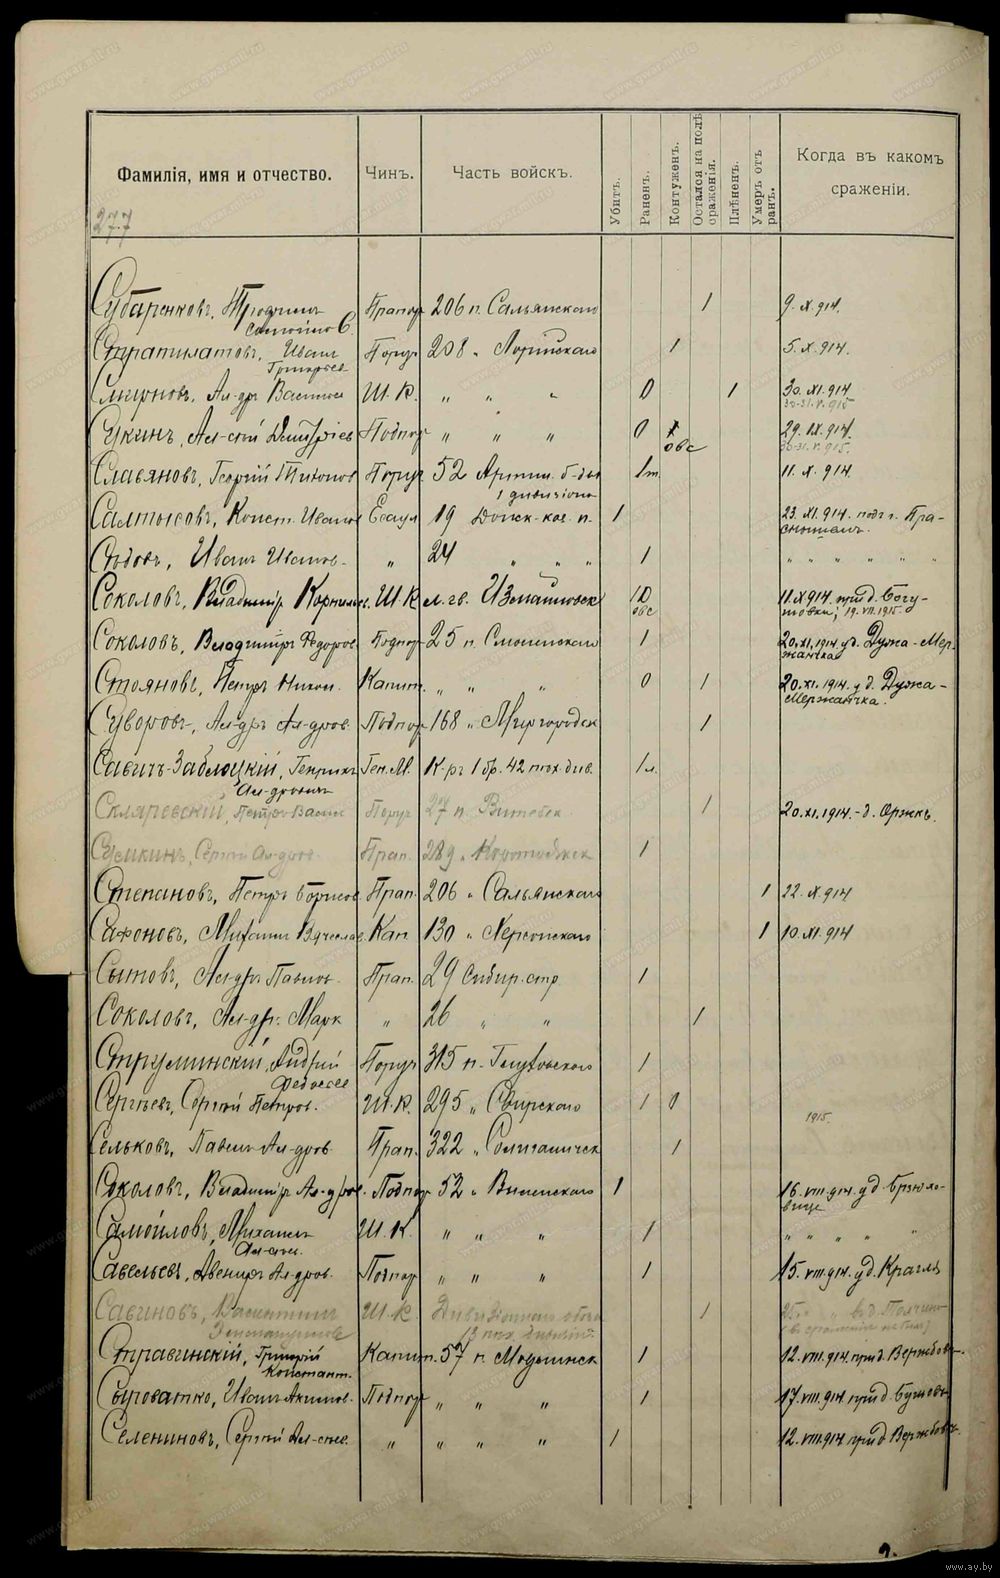 Фамилія, имя и отчество. Чинъ. Часть войскъ. Убитъ. Раненъ. Контуженъ. Остался на полѣ сраженія. Плѣненъ. Умеръ отъ ранъ. Когда въ какомъ сраженіи.
277
Субаренковъ, Прапор 206 п. Сальянскаго 1 9. X. 914.
Стратилатовъ, Иванъ Поруч 208 „ Лорійскаго 1 5. X. 914.
Григорьев
Смирновъ, Ал-дръ Васильев Ш. К. „ „ „ 0 1 30. XI. 914.
30-31. V. 915
Сукинъ, Ал-сѣй Дмитріев Подпор „ „ „ 0 1 29. IX. 914.
обс 30-31. V. 915.
Славьяновъ, Георгій Тихонов Поруч. 52 Артил. б-ды 1т. 11. X. 914.
1 дивизіона
Салтысовъ, Конст. Иванов Есаул 19 Донск. каз. п. 1 23. XI. 914. подъ г. Пра-
снышемъ.
Сѣдовъ, Иванъ Иванов. „ 24 „ „ „ 1 „ „ „ „ „ „
Соколовъ, Владиміръ Корнильев. Ш. К. л. гв. Измайловск 10 11. X 914. при д. Богу-
обс ; 19. VII. 1915.
Соколовъ, Владиміръ Ѳедоров. Подпор 25 п. Смоленскаго 1 20. XI. 1914. у д. Дужа-Мер-
жанчка
Стояновъ, Петръ Никол. Капит. „ „ „ 0 1 20. XI. 1914. у д. Дужа-
Мержанчка.
Суворовъ, Ал-дръ Ал-дров. Подпор 168 „ Миргородск 1
Савичъ-Заблоцкій, Генрихъ Ген. М. К-ръ 1 бр. 42 пѣх. див. 1л.
Ал-дрович
Скляревскій, Петръ Васил Поруч 27 п. Витебск. 1 20. XI. 1914. - д. Оржкъ.
Сумкинъ, Сергѣй Ал-дров. Прап. 289 „ Коротоякск 1
Степановъ, Петръ Борисов. Прап. 206 „ Сальянскаго 1 22. X. 914
Сафоновъ, Михаилъ Вячеслав. Кап. 130 „ Херсонскаго 1 10. XI. 914
Сытовъ, Ал-дръ Павлов. Прап. 29 Сибир. стр. 1
Соколовъ, Ал-дръ Марк „ 26 „ „ 1
Струминскій, Андрей Поруч 315 п. Глуховскаго 1
Федосее
Сергѣевъ, Сергѣй Петров. Ш. К. 295 „ Свирскаго 1 0
1915.
Сельковъ, Павелъ Ал-дров Прап. 322 „ Солигаличск 1
Соколовъ, Владиміръ Ал-дров. Подпор 52 „ Виленскаго 1 16. VIII. 914. у д. Брзюхо-
вице
Самойловъ, Михаилъ Ш. К. „ „ „ 1 „ „ „ „ „
Ал-сѣев.
Савельевъ, Авениръ Ал-дров. Подпор „ „ „ 1 15. VIII. 914. у д. Краглѧ
Савиновъ, Валентинъ Ш. К. Дивизіоннаго обоза 1 25. „ „ в д.
13 пѣх. дивизій.
Стравинскій, Григорій Капит. 57 п. Модлинск 1 12. VIII. 914. при д. Вержбовъ.
Констант.
Сыроватко, Иванъ Акимов. Подпор „ „ „ 1 17. VIII. 914. при д. Буковъ
Селениновъ, Сергѣй Ал-сѣев. „ „ „ „ 1 12. VIII. 914 при д Вержбовъ.
www.gwar.mil.ru
www.ay.by